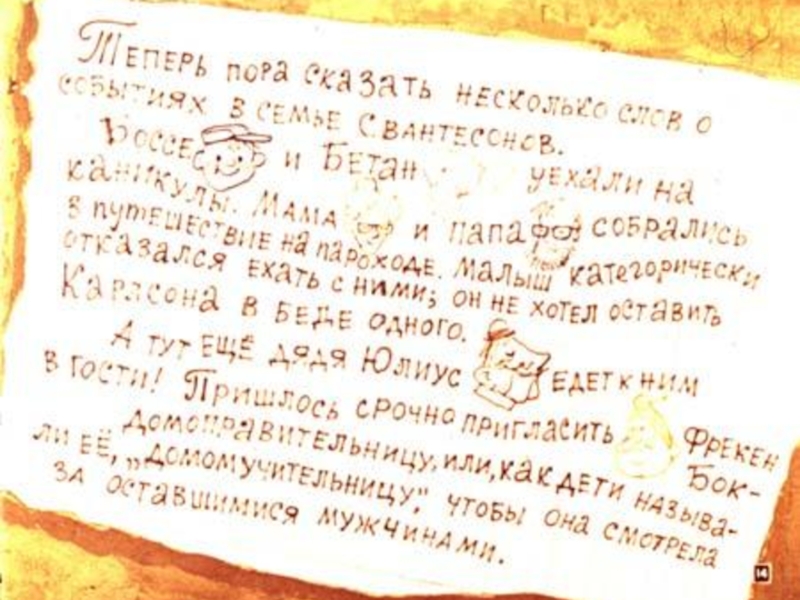 Теперь пора сказать несколько слов о
событиях в семье Свантесонов.
Боссе и Бетан уехали на
каникулы. Мама и папа собрались
в путешествие на пароходе. Малыш категорически
отказался ехать с ними; он не хотел оставить
Карлсона в беде одного.
А тут ещё дядя Юлиус едет к ним
в гости! Пришлось срочно пригласить фрекен
Бок-
домоправительницу, или, как дети называ-
ли её, „домомучительницу", чтобы она смотрела
за оставшимися мужчинами.
14